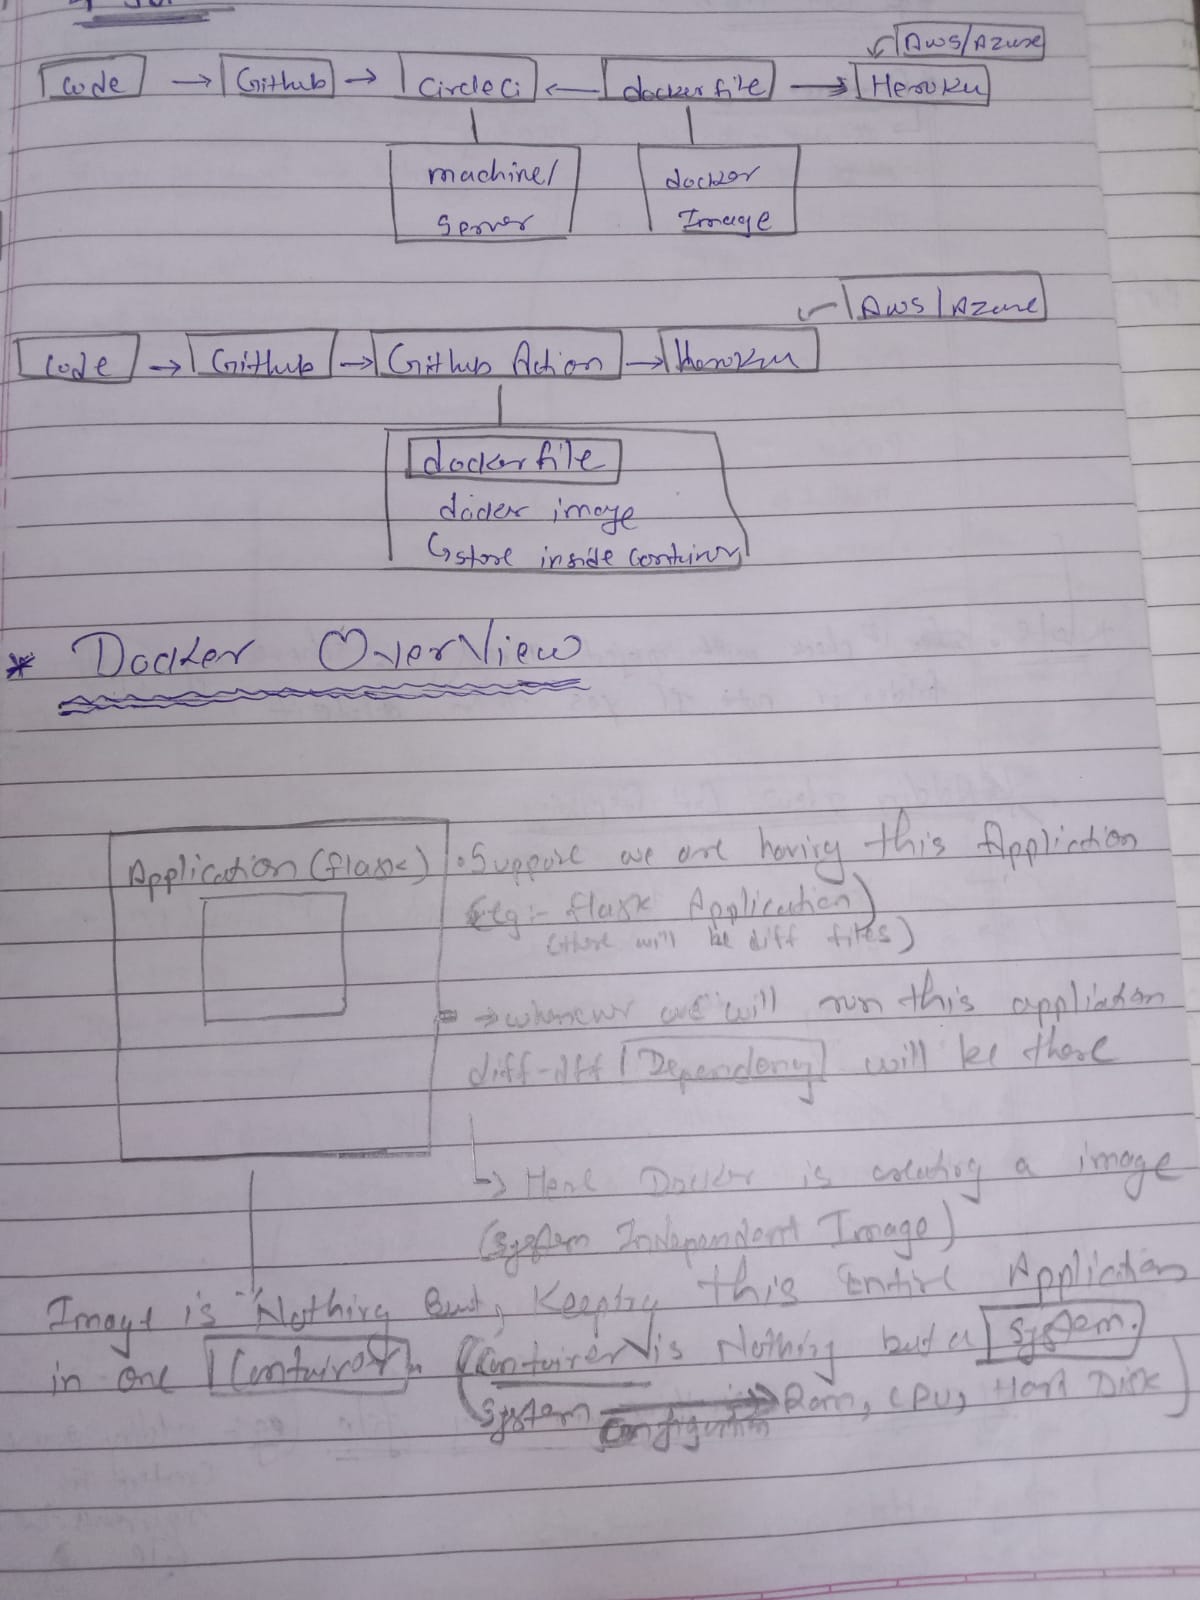 AWS/Azure
Code → Github → Circle Ci ← dockerfile → Heroku
machine/ docker
Server Image
AWS/Azure
Code → Github → Github Action → Heroku
dockerfile
docker image
↳ store inside container
* Docker OverView
Application (flask) • Suppose we are having this Application
(eg:- flask Application)
(there will be diff files)
→ whenever we will run this application
diff-diff Dependency will be there
↳ Here Docker is creating a image
(System Independent Image)
Image is "Nothing But, Keeping this Entire Application
in one Container. (Container is Nothing but a System.
System Configuration → Ram, CPU, Hard Disk)